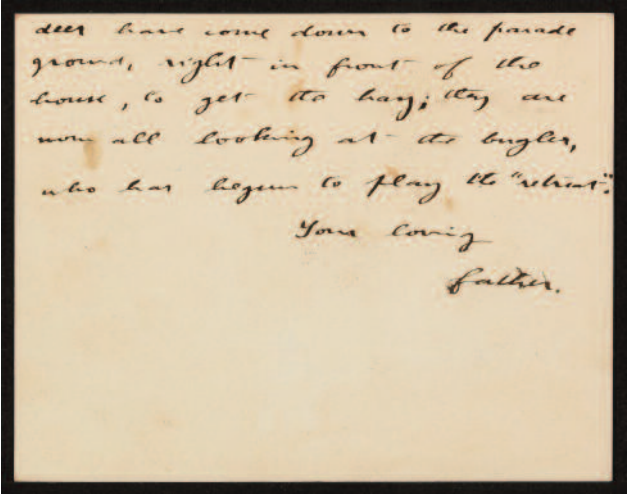 deer have come down to the parade
ground, right in front of the
house, to get the hay; they are
now all looking at the bugler,
who has begun to play the "retreat".
Your loving
father.